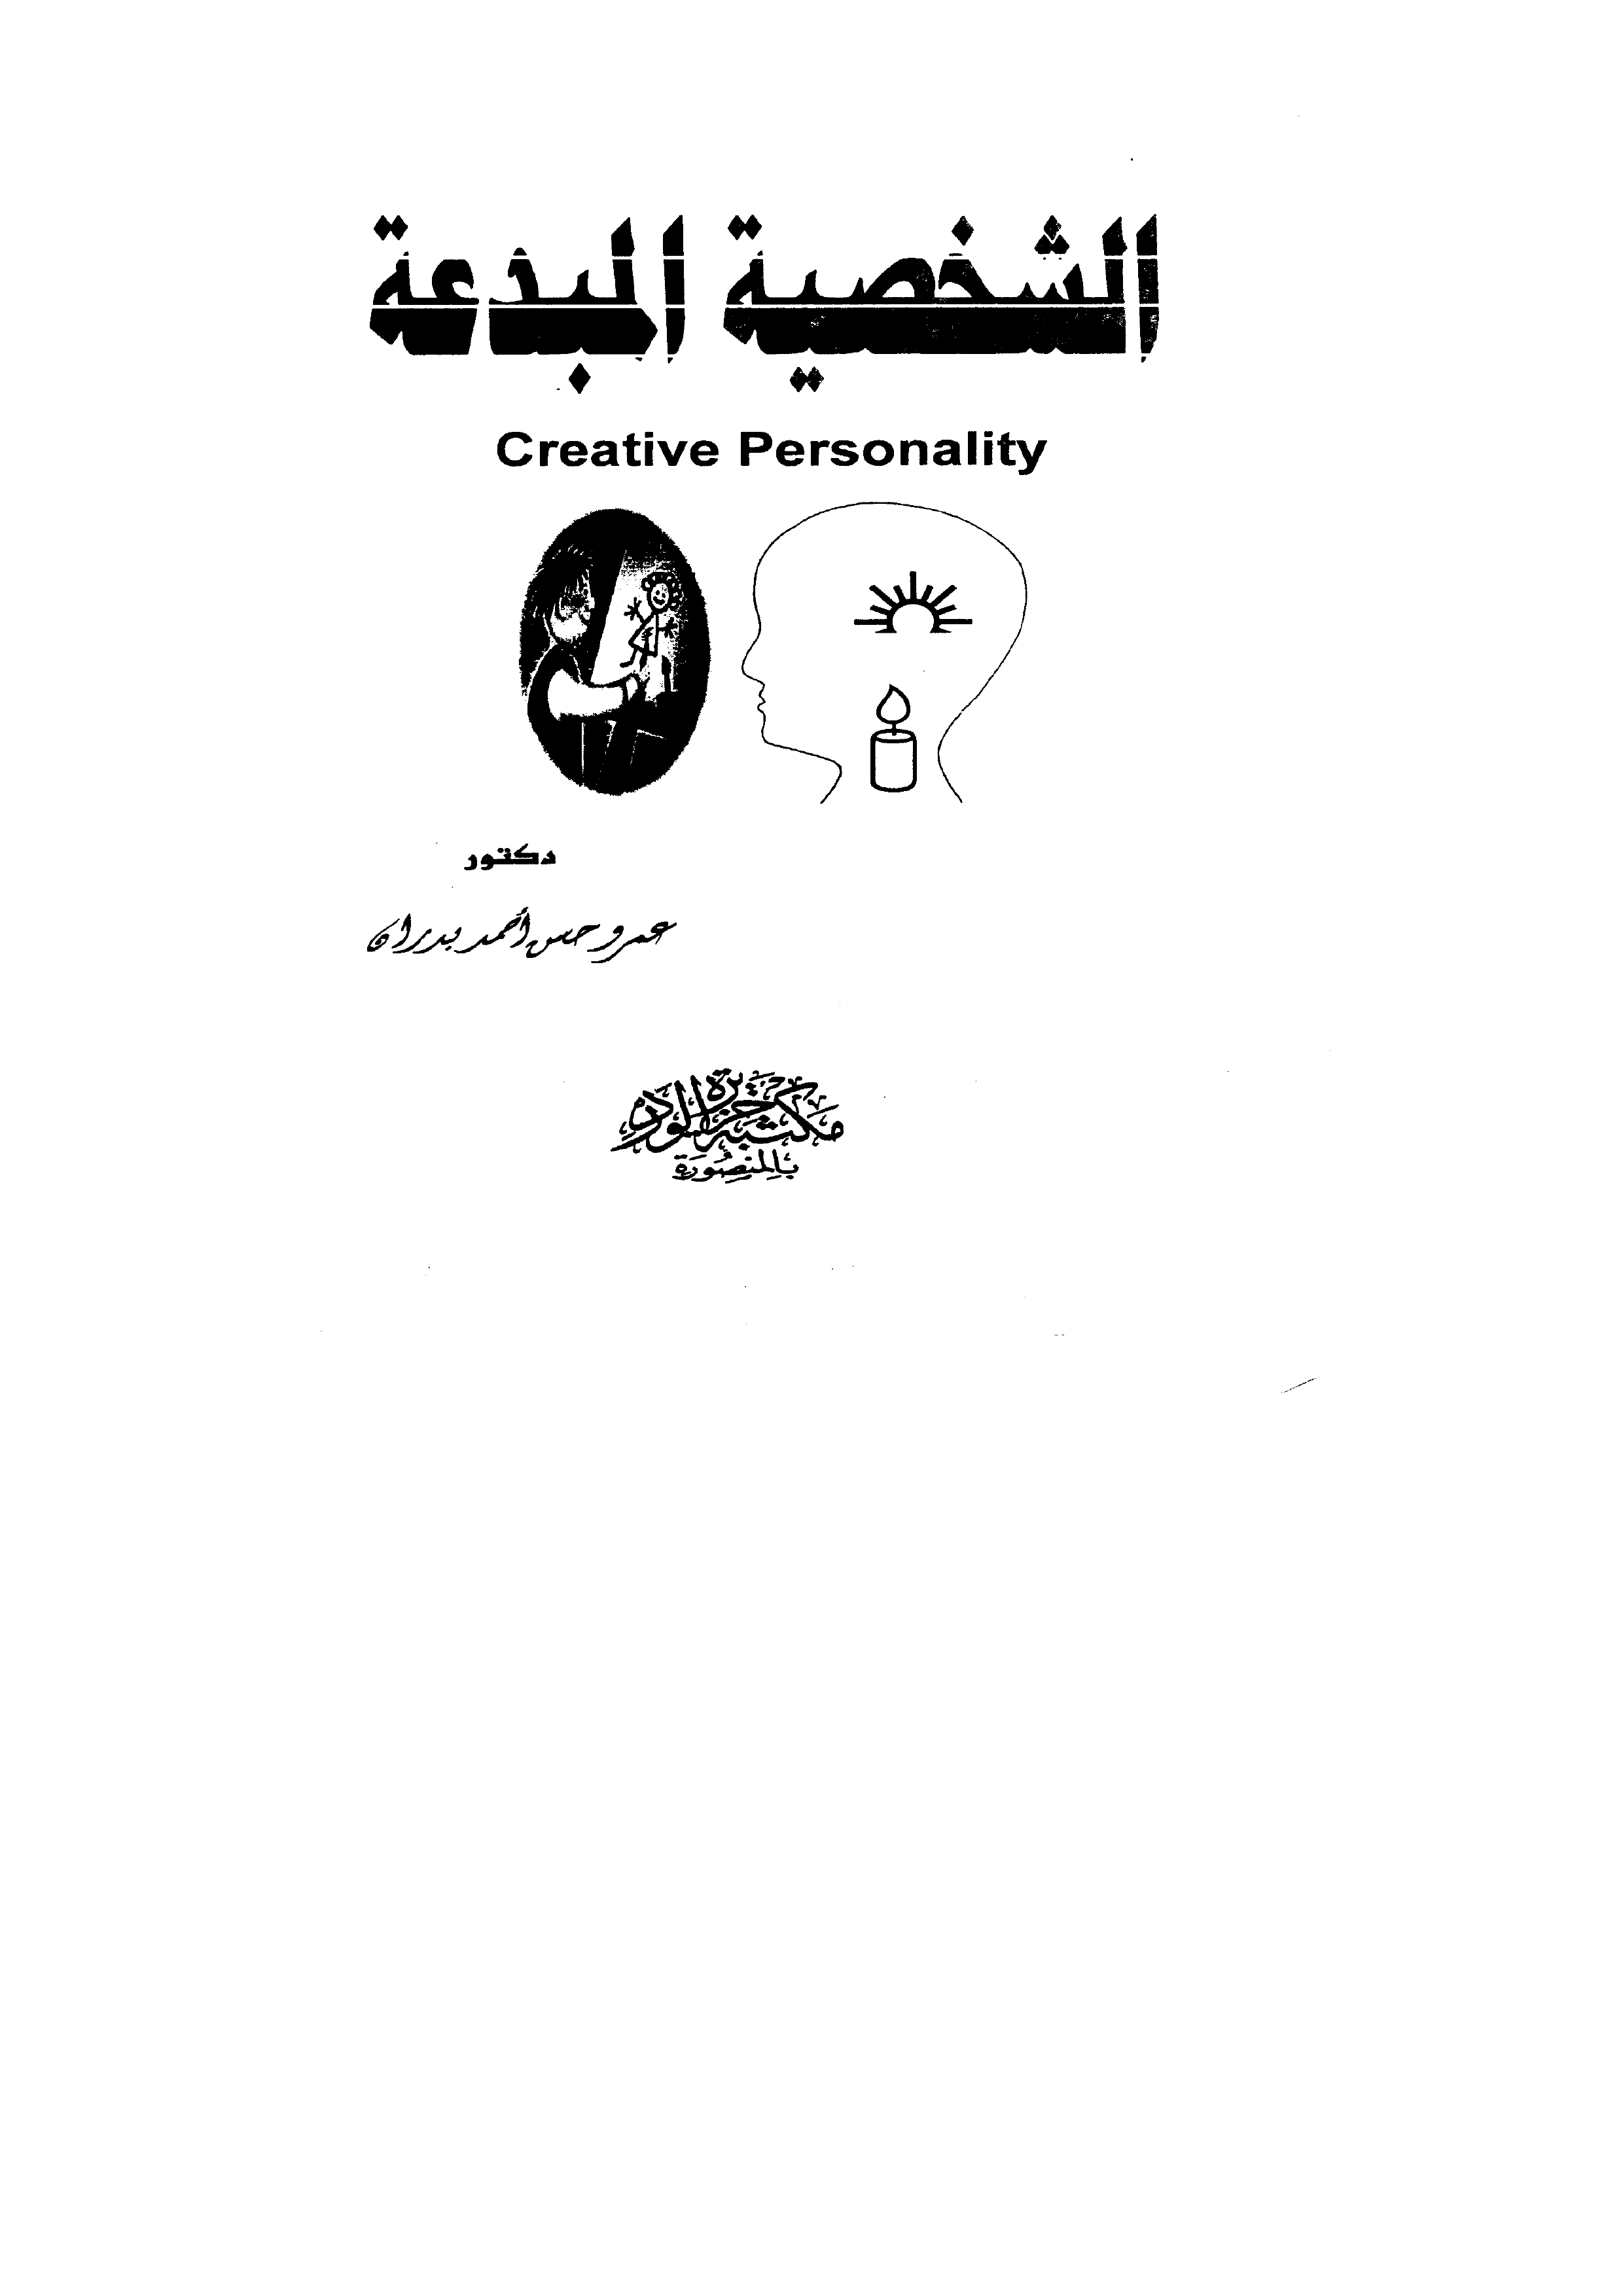 الشخصية المبدعة
Creative Personality
دكتور
عمرو حسن أحمد بدران
مكتبة جزيرة الورد
بالمنصورة